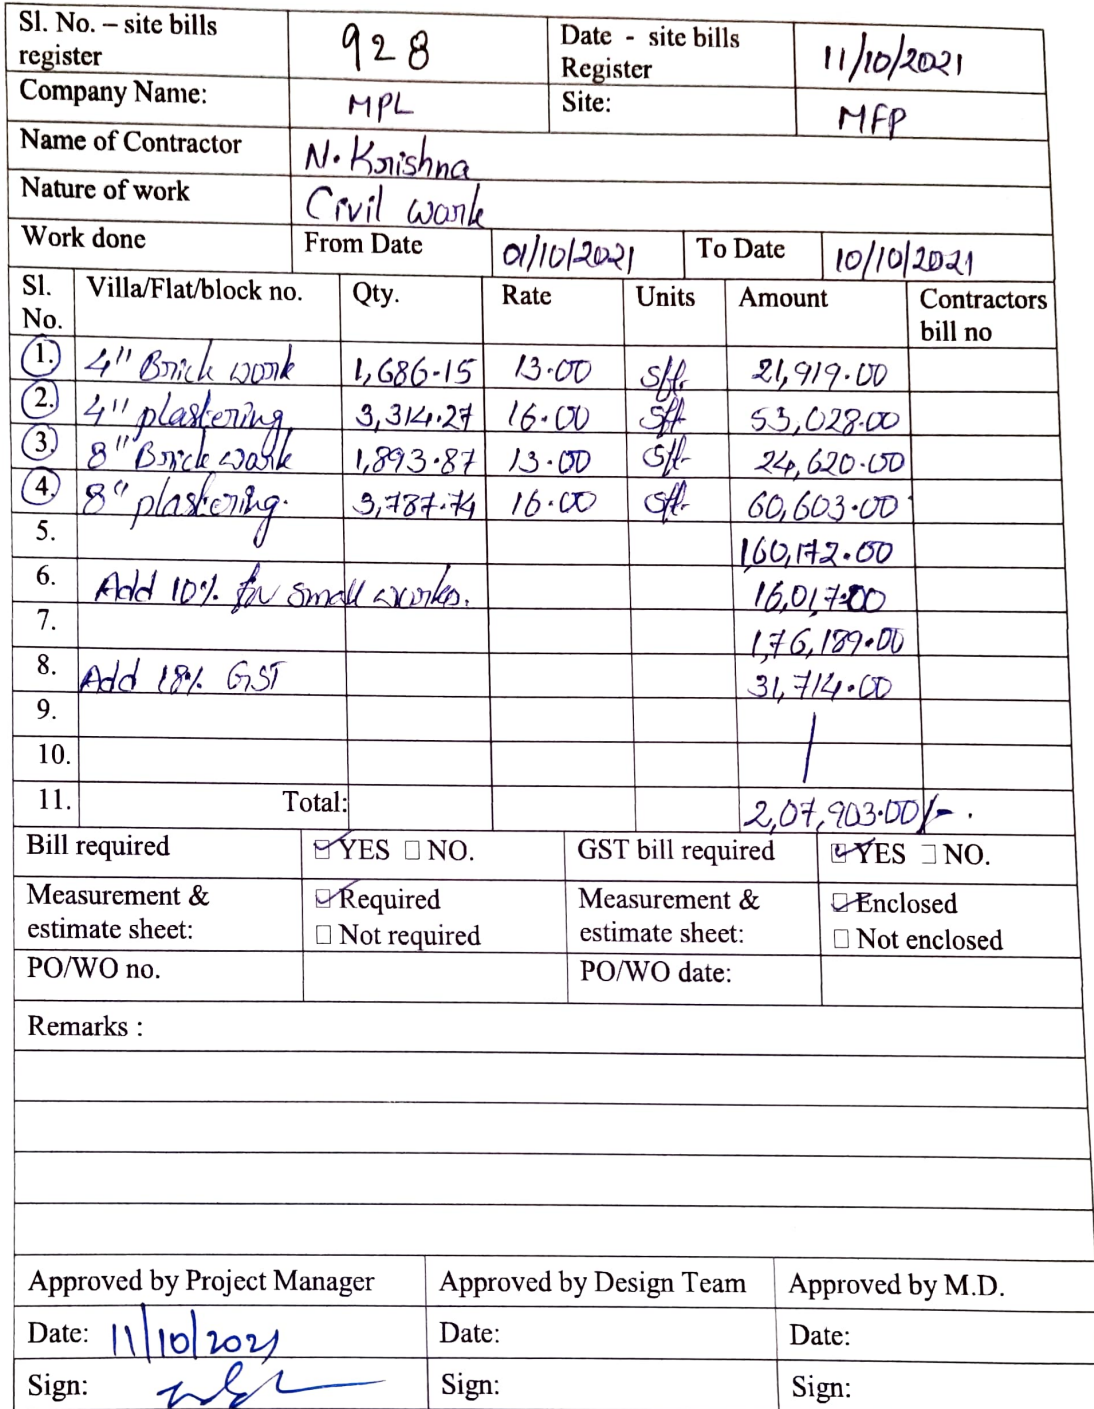 Sl. No. – site bills register 928 Date - site bills Register 11/10/2021
Company Name: MPL Site: MFP
Name of Contractor N. Krishna
Nature of work Civil work
Work done From Date 01/10/2021 To Date 10/10/2021
Sl. No. Villa/Flat/block no. Qty. Rate Units Amount Contractors bill no
1. 4" Brick work 1,686.15 13.00 sft. 21,919.00
2. 4" plastering 3,314.27 16.00 sft 53,028.00
3. 8" Brick work 1,893.87 13.00 sft. 24,620.00
4. 8" plastering. 3,787.74 16.00 sft. 60,603.00
5. 160,172.00
6. Add 10% for small works. 16,017.00
7. 1,76,189.00
8. Add 18% GST 31,714.00
9.
10.
11. Total: 2,07,903.00/- .
Bill required ☑ YES ☐ NO. GST bill required ☑ YES ☐ NO.
Measurement & estimate sheet: ☑ Required ☐ Not required Measurement & estimate sheet: ☑ Enclosed ☐ Not enclosed
PO/WO no. PO/WO date:
Remarks :
Approved by Project Manager Approved by Design Team Approved by M.D.
Date: 11/10/2021 Date: Date:
Sign: Sign: Sign: